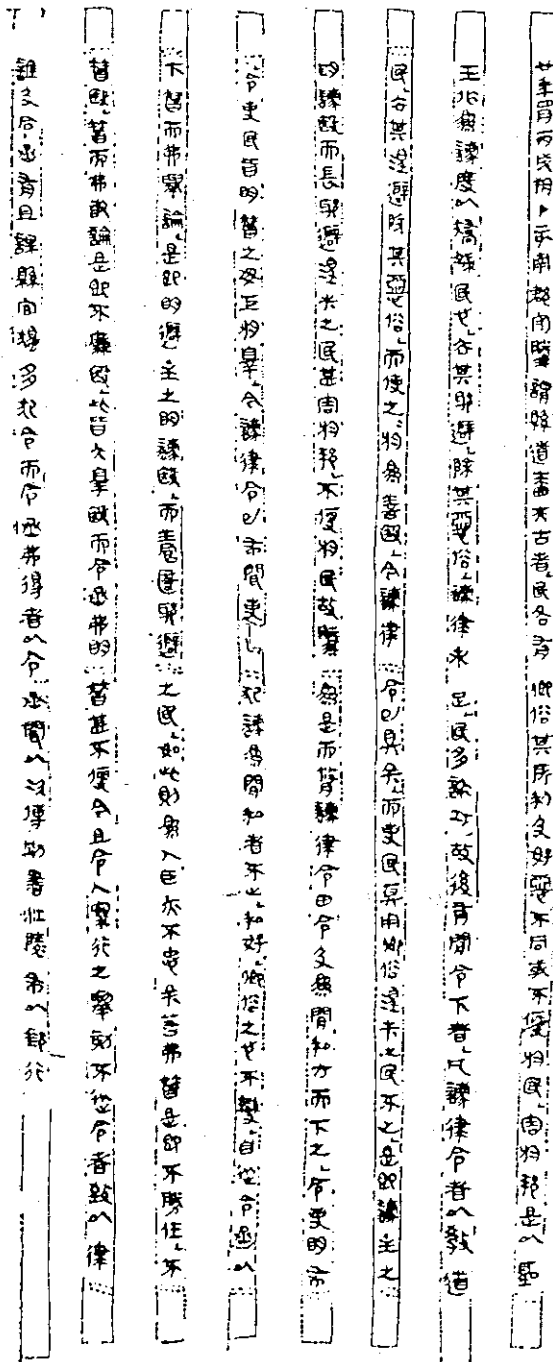 廿年四月丙戌朔丁亥南郡守騰謂縣道嗇夫古者民各有鄉俗其所利及好惡不同或不便於民害於邦是以聖
王作為灋度以矯端民心去其邪避除其惡俗灋律未足民多詐巧故後有閒令下者凡灋律令者以教道
民去其淫避除其惡俗而使之之於為善殹今灋律令已具矣而吏民莫用鄉俗淫失之民不止是即灋主之
明灋殹而長邪避淫失之民甚害於邦不便於民故騰為是而脩灋律令田令及為閒私方而下之令吏明布
令吏民皆明智之毋巨於辠今灋律令已布聞吏民犯灋為閒私者不止私好鄉俗之心不變自從令丞以
下智而弗舉論是即明避主之明灋殹而養匿邪避之民如此則為人臣亦不忠矣若弗智是即不勝任不
智殹智而弗敢論是即不廉殹此皆大辠殹而令丞弗明智甚不便今且令人案行之舉劾不從令者致以律
論及令丞有且課縣官獨多犯令而令丞弗得者以令丞聞以次傳別書江陵布以郵行